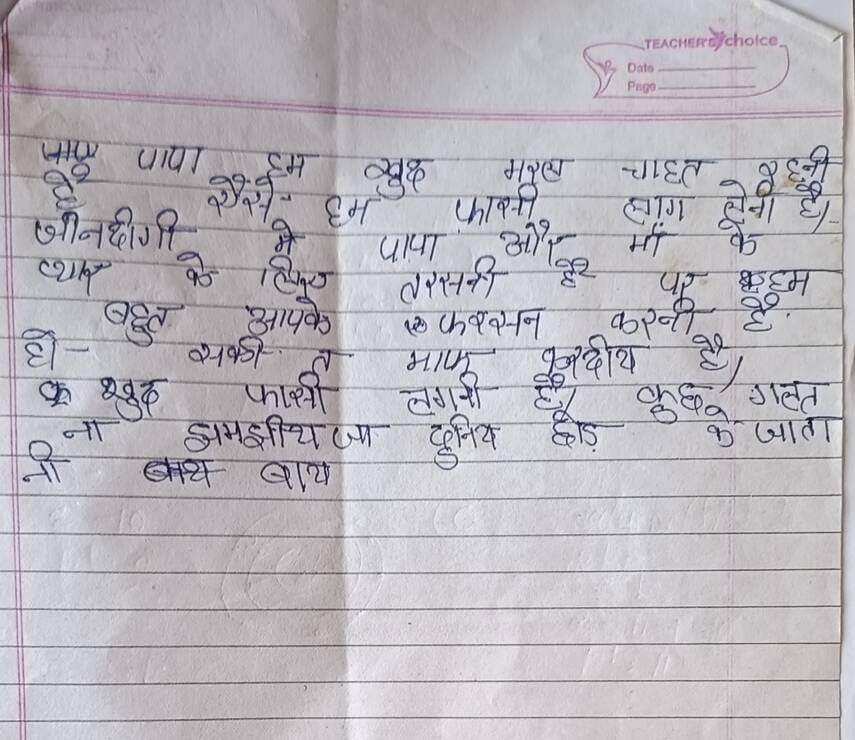 TEACHER'S choice
Date
Page
पापा हम खुद मरल चाहत रहनी
है हम फासी लाग लेनी है।
जीनदीगी मे पापा और माँ के
प्यार के लिए तरसनी है पर हम
बहुत आपके करसन करनी है
हो सकी त माफ करदीय है।
खुद फासी लगनी है। कुछ गलत
ना झमझीय जा दुनिय छोड़ के जाता
नी बाय बाय